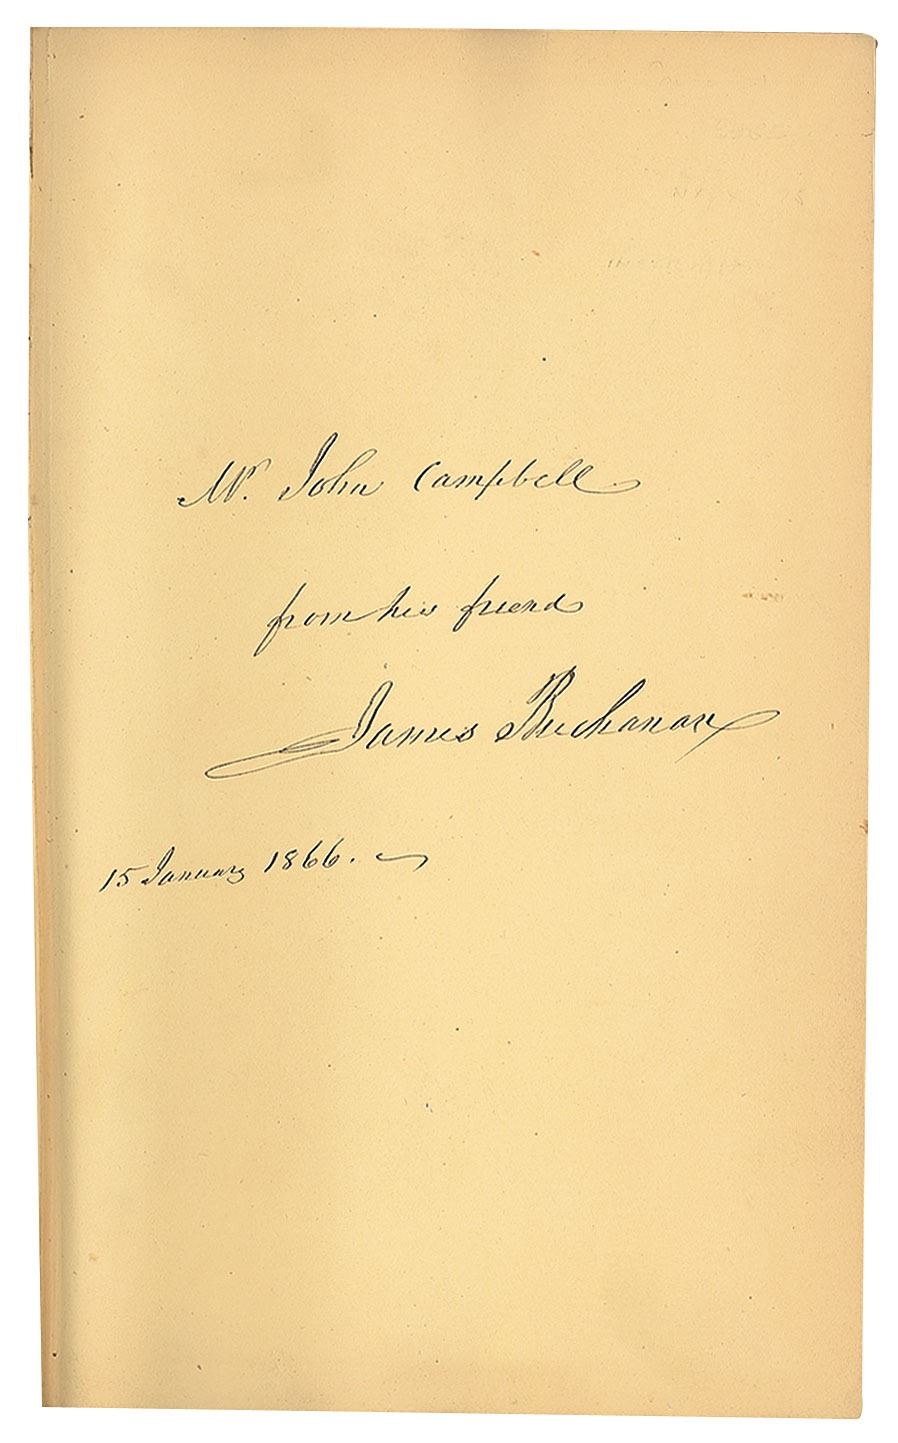 Mr. John Campbell
from his friend
James Buchanan
15 January 1866.